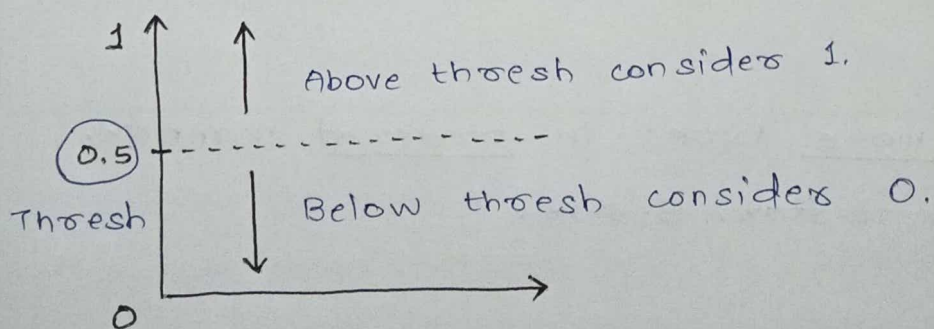 1
Above thresh consider 1.
0.5
Thresh
Below thresh consider 0.
0